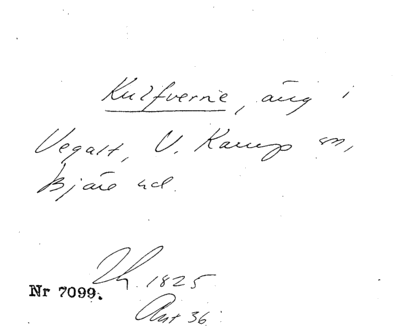 Kulfverne, äng i
Vegalt, V. Karup sn,
Bjäre hd.
1825
Nr 7099.
Akt 36.